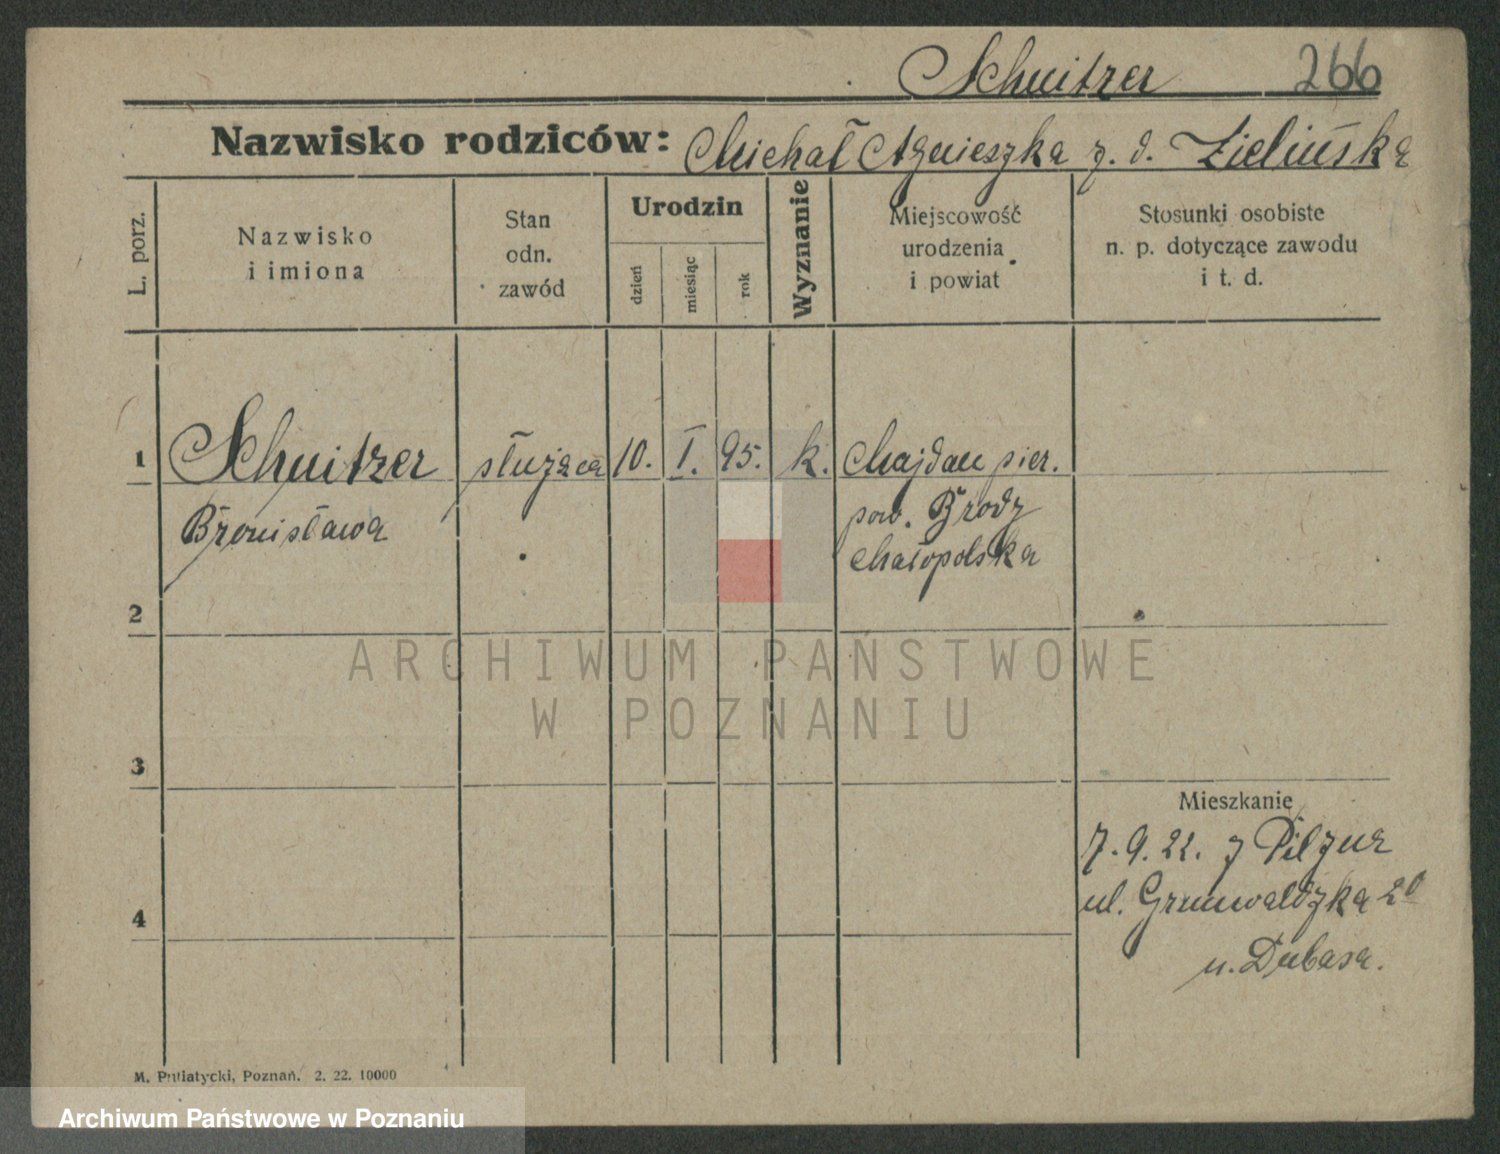 Schnitzer 266
Nazwisko rodziców: Michał Agnieszka z. d. Zielińska
L. porz.
Nazwisko
i imiona
Stan
odn.
zawód
Urodzin
dzień
miesiąc
rok
Wyznanie
Miejscowość
urodzenia
i powiat
Stosunki osobiste
n. p. dotyczące zawodu
i t. d.
1 Schnitzer służąca 10. I. 95. k. Majdan pier.
Bronisława pow. Brody
Małopolska
2
ARCHIWUM PAŃSTWOWE
W POZNANIU
3
Mieszkanie
7. 9. 22. z Pilzna
4 ul. Grunwaldzka 20
u. Dubasa.
M. Putiatycki, Poznań. 2. 22. 10000
Archiwum Państwowe w Poznaniu